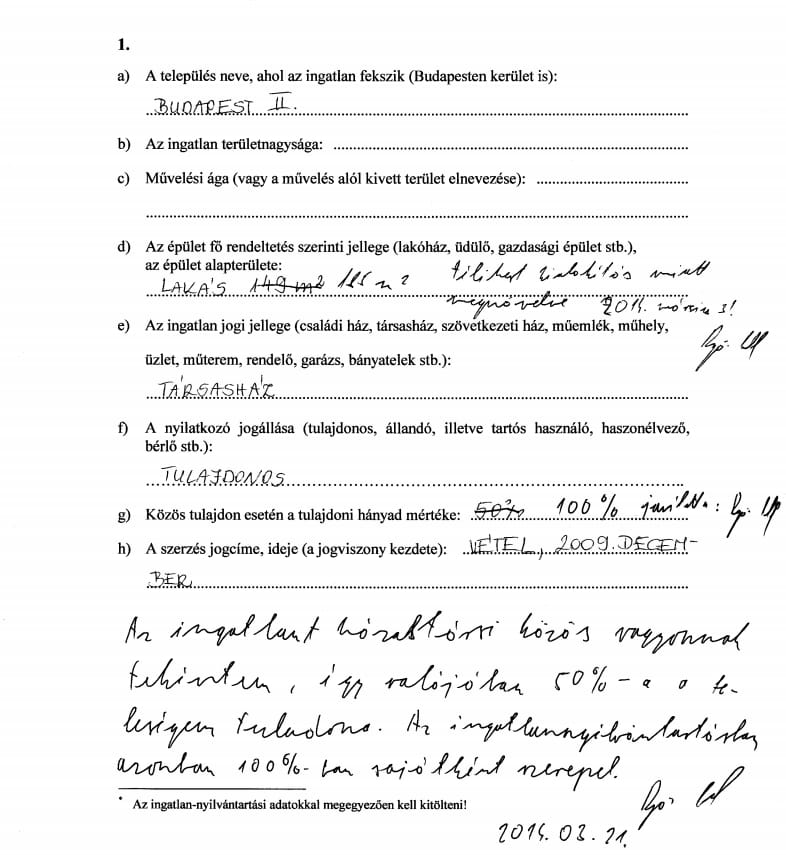 1.
a) A település neve, ahol az ingatlan fekszik (Budapesten kerület is):
BUDAPEST II.
b) Az ingatlan területnagysága:
c) Művelési ága (vagy a művelés alól kivett terület elnevezése):
d) Az épület fő rendeltetés szerinti jellege (lakóház, üdülő, gazdasági épület stb.),
az épület alapterülete:
LAKÁS 149 m2 185 m2 miatt
megnövelve
e) Az ingatlan jogi jellege (családi ház, társasház, szövetkezeti ház, műemlék, műhely,
üzlet, műterem, rendelő, garázs, bányatelek stb.):
TÁRSASHÁZ
f) A nyilatkozó jogállása (tulajdonos, állandó, illetve tartós használó, haszonélvező,
bérlő stb.):
TULAJDONOS
g) Közös tulajdon esetén a tulajdoni hányad mértéke: 50% 100% javította:
h) A szerzés jogcíme, ideje (a jogviszony kezdete): VÉTEL, 2009. DECEM-
BER
Az ingatlant házastársi közös vagyonnak
tekintem, így valójában 50%-a a fe-
leségem tulajdona. Az ingatlannyilvántartásban
azonban 100%-ban sajátként szerepel.
* Az ingatlan-nyilvántartási adatokkal megegyezően kell kitölteni!